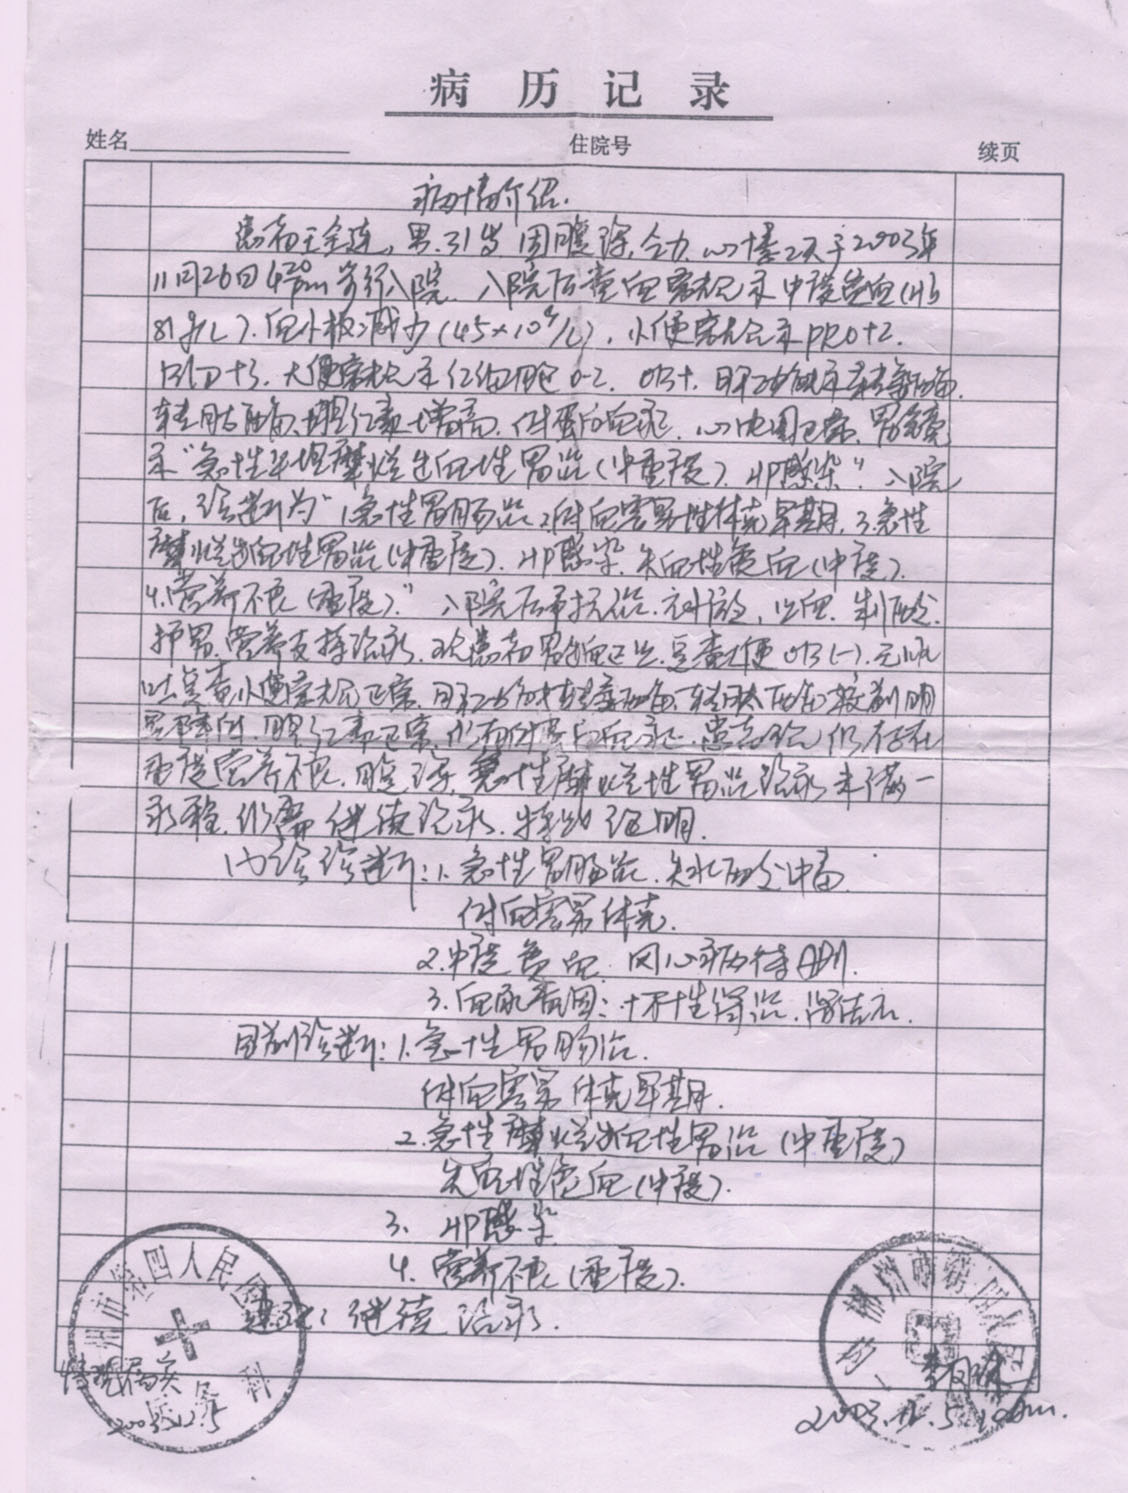 病历记录
姓名 住院号 续页
病情介绍.
患者王全连, 男.31岁 因腹泻.乏力.心悸2天于2003年
11月26日4:20pm步行入院. 入院后查血常规示中度贫血(Hb
81g/L).血小板减少(45×10⁹/L), 小便常规示PRO+2.
BLD+3. 大便常规示红细胞0-2. OB+. 肝功能示转氨酶.
转肽酶、胆红素增高. 低蛋白血症. 心电图正常. 胃镜
示"急性平坦糜烂出血性胃炎(中重度). HP感染". 入院
后, 诊断为"1.急性胃肠炎.2.低血容量性休克早期. 3.急性
糜烂出血性胃炎(中重度). HP感染. 失血性贫血(中度).
4.营养不良(重度)." 入院后予抗炎.补液, 止血.制酸.
护胃.营养支持治疗. 现患者胃出血已止.复查大便OB(-).
复查小便常规正常. 肝功能转氨酶、转肽酶较前明
显降低. 胆红素正常. 仍有低蛋白血症. 患者现仍存在
重度营养不良. 腹泻. 急性糜烂性胃炎治疗未满一
疗程. 仍需继续治疗. 特此证明.
门诊诊断: 1.急性胃肠炎. 失水酸中毒
低血容量休克.
2.中度贫血. 冠心病待
3.血尿查因: 肾结石.
目前诊断: 1.急性胃肠炎.
低血容量休克早期.
2.急性糜烂出血性胃炎(中重度)
失血性贫血(中度).
3. HP感染
4. 营养不良(重度).
建议: 继续治疗.
情况属实
2003.12.5
2003.12.5.
州市第四人民医 医务科
郴州市第四人民